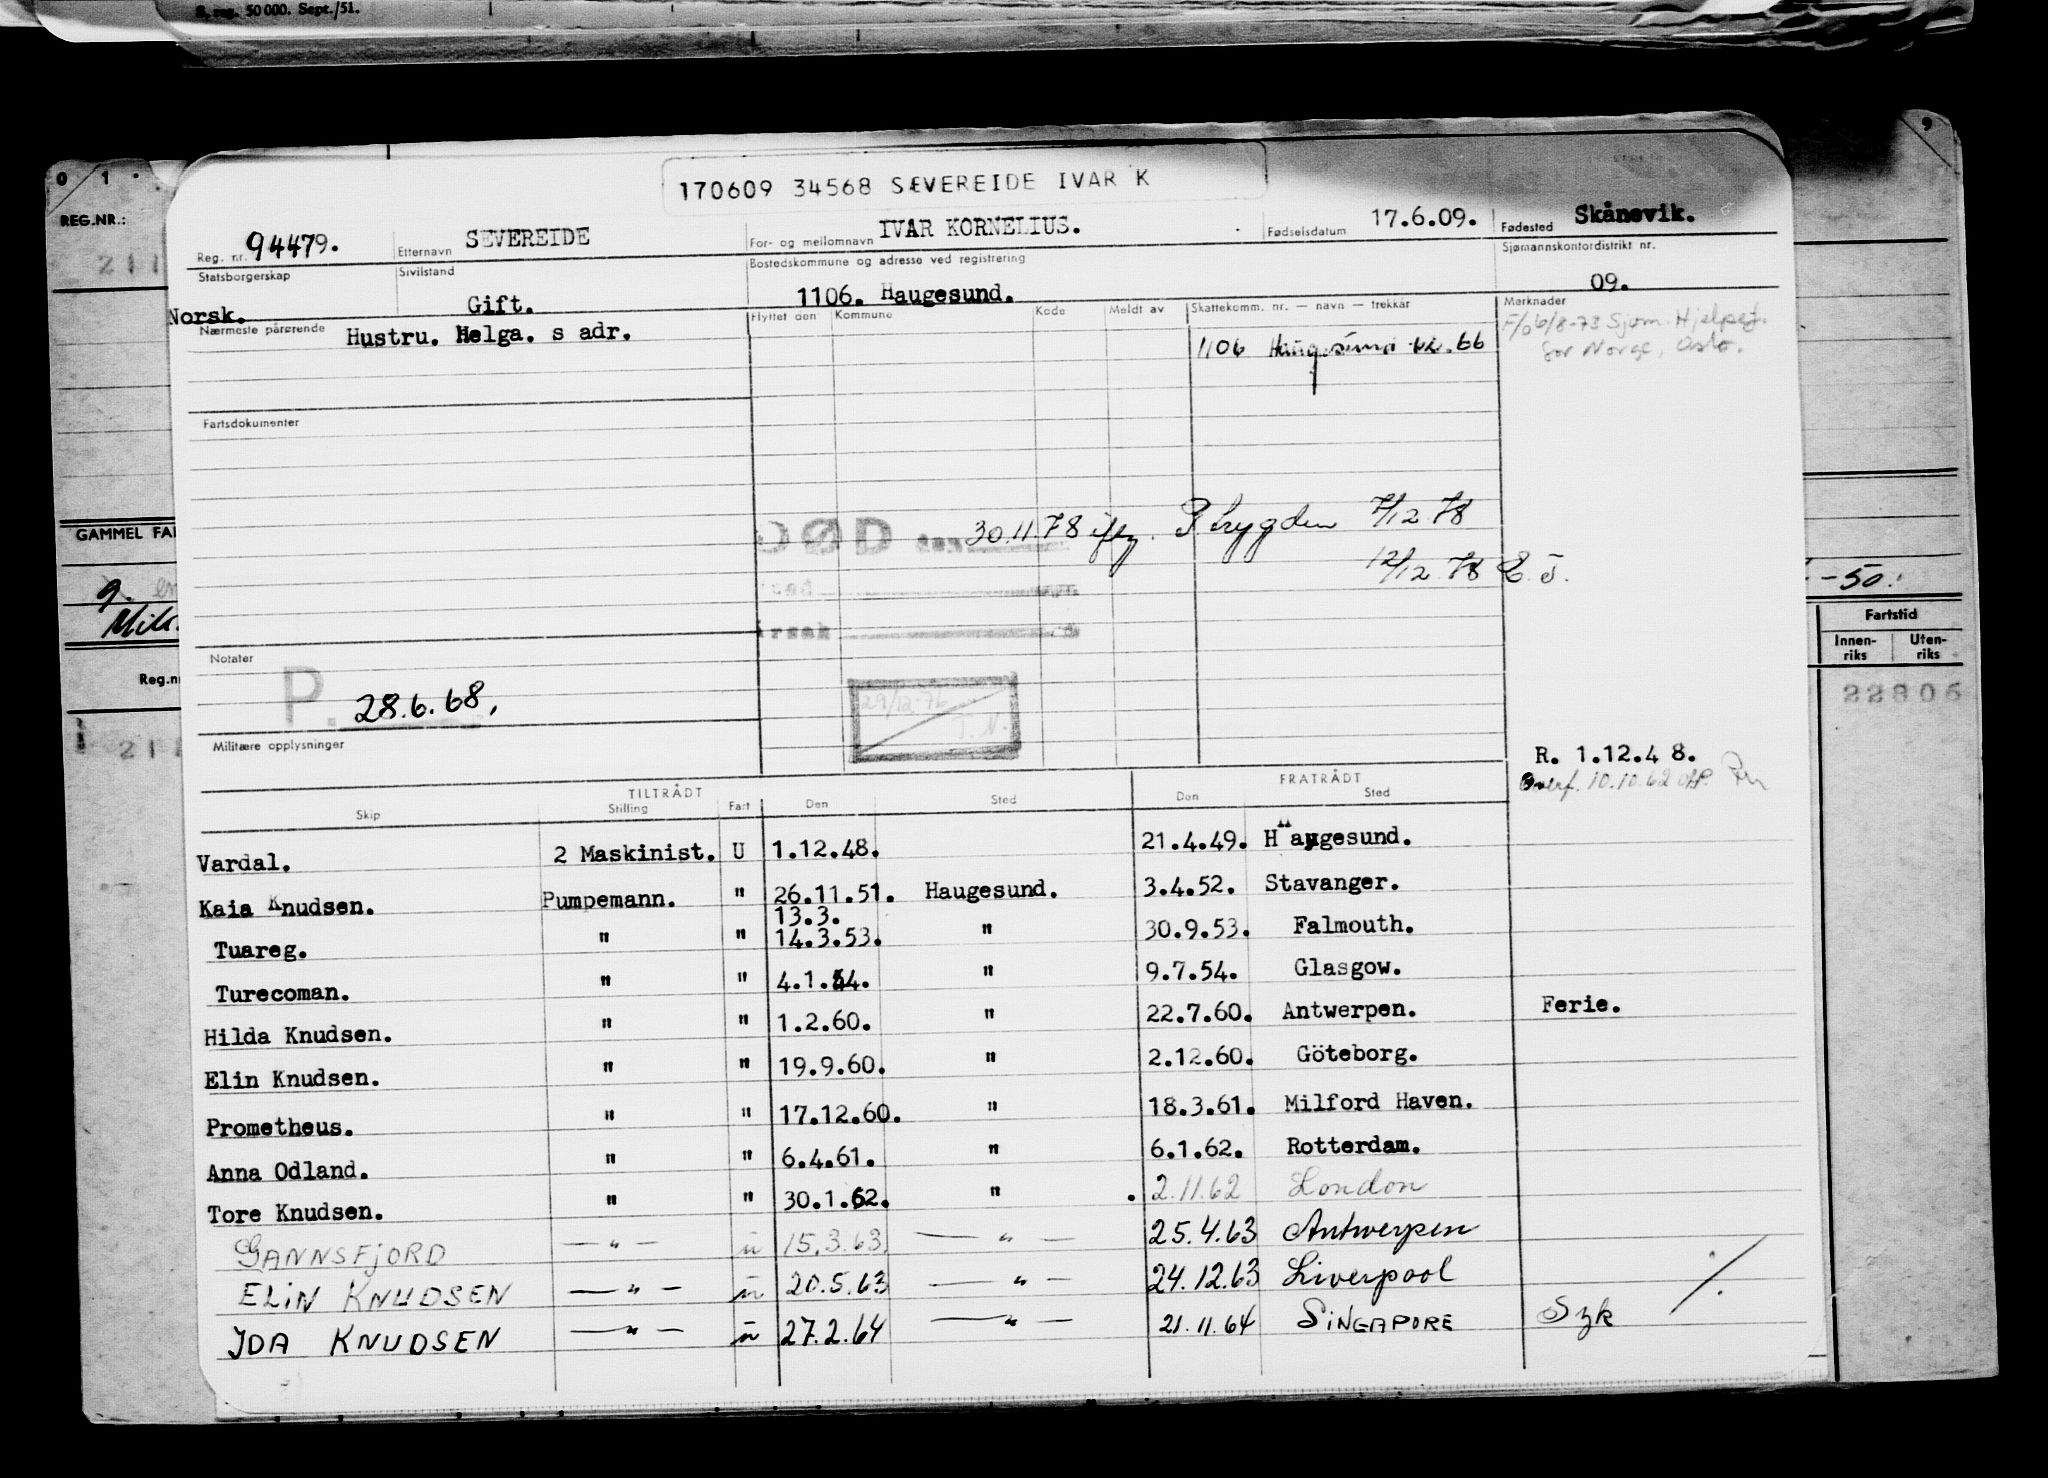 S. reg. 50 000. Sept./51.
0 1 9
170609 34568 SÆVEREIDE IVAR K
REG.NR.: 211
Reg. nr. 94479. Etternavn SEVEREIDE For- og mellomnavn IVAR KORNELIUS. Fødselsdatum 17.6.09. Fødested Skånevik.
Statsborgerskap Norsk. Sivilstand Gift. Bostedskommune og adresse ved registrering 1106. Haugesund. Sjømannskontordistrikt nr. 09.
Nærmeste pårørende Hustru. Helga. s adr. Flyttet den Kommune Kode Meldt av Skattekomm. nr. — navn — trekkår Merknader
1106 Haugesund 66
F/o 6/8-73 Sjøm. Hjelpef. for Norge, Oslo.
Fartsdokumenter
GAMMEL FA
DØD den 30.11.78 iflg. P. trygden 7/12 78
12/12 78 E. J.
sted
Årsak
g. -50.
Milit
Fartstid
Innenriks Utenriks
Notater
Reg.n
P. 28.6.68.
29/12-76 T. N.
22806
211
Militære opplysninger
R. 1.12.48.
Overf. 10.10.62
TILTRÅDT FRATRÅDT
Skip Stilling Fart Den Sted Den Sted
Vardal. 2 Maskinist. U 1.12.48. 21.4.49. Haugesund.
Kaia Knudsen. Pumpemann. " 26.11.51. Haugesund. 3.4.52. Stavanger.
13.3.
Tuareg. " " 14.3.53. " 30.9.53. Falmouth.
Turecoman. " " 4.1.54. " 9.7.54. Glasgow.
Hilda Knudsen. " " 1.2.60. " 22.7.60. Antwerpen. Ferie.
Elin Knudsen. " " 19.9.60. " 2.12.60. Göteborg.
Prometheus. " " 17.12.60. " 18.3.61. Milford Haven.
Anna Odland. " " 6.4.61. " 6.1.62. Rotterdam.
Tore Knudsen. " " 30.1.62. " 2.11.62 London
GANNSFJORD — " — u 15.3.63. — " — 25.4.63 Antwerpen
ELIN KNUDSEN — " — u 20.5.63 — " — 24.12.63 Liverpool
IDA KNUDSEN — " — u 27.2.64 — " — 21.11.64 SINGAPORE Syk ./.